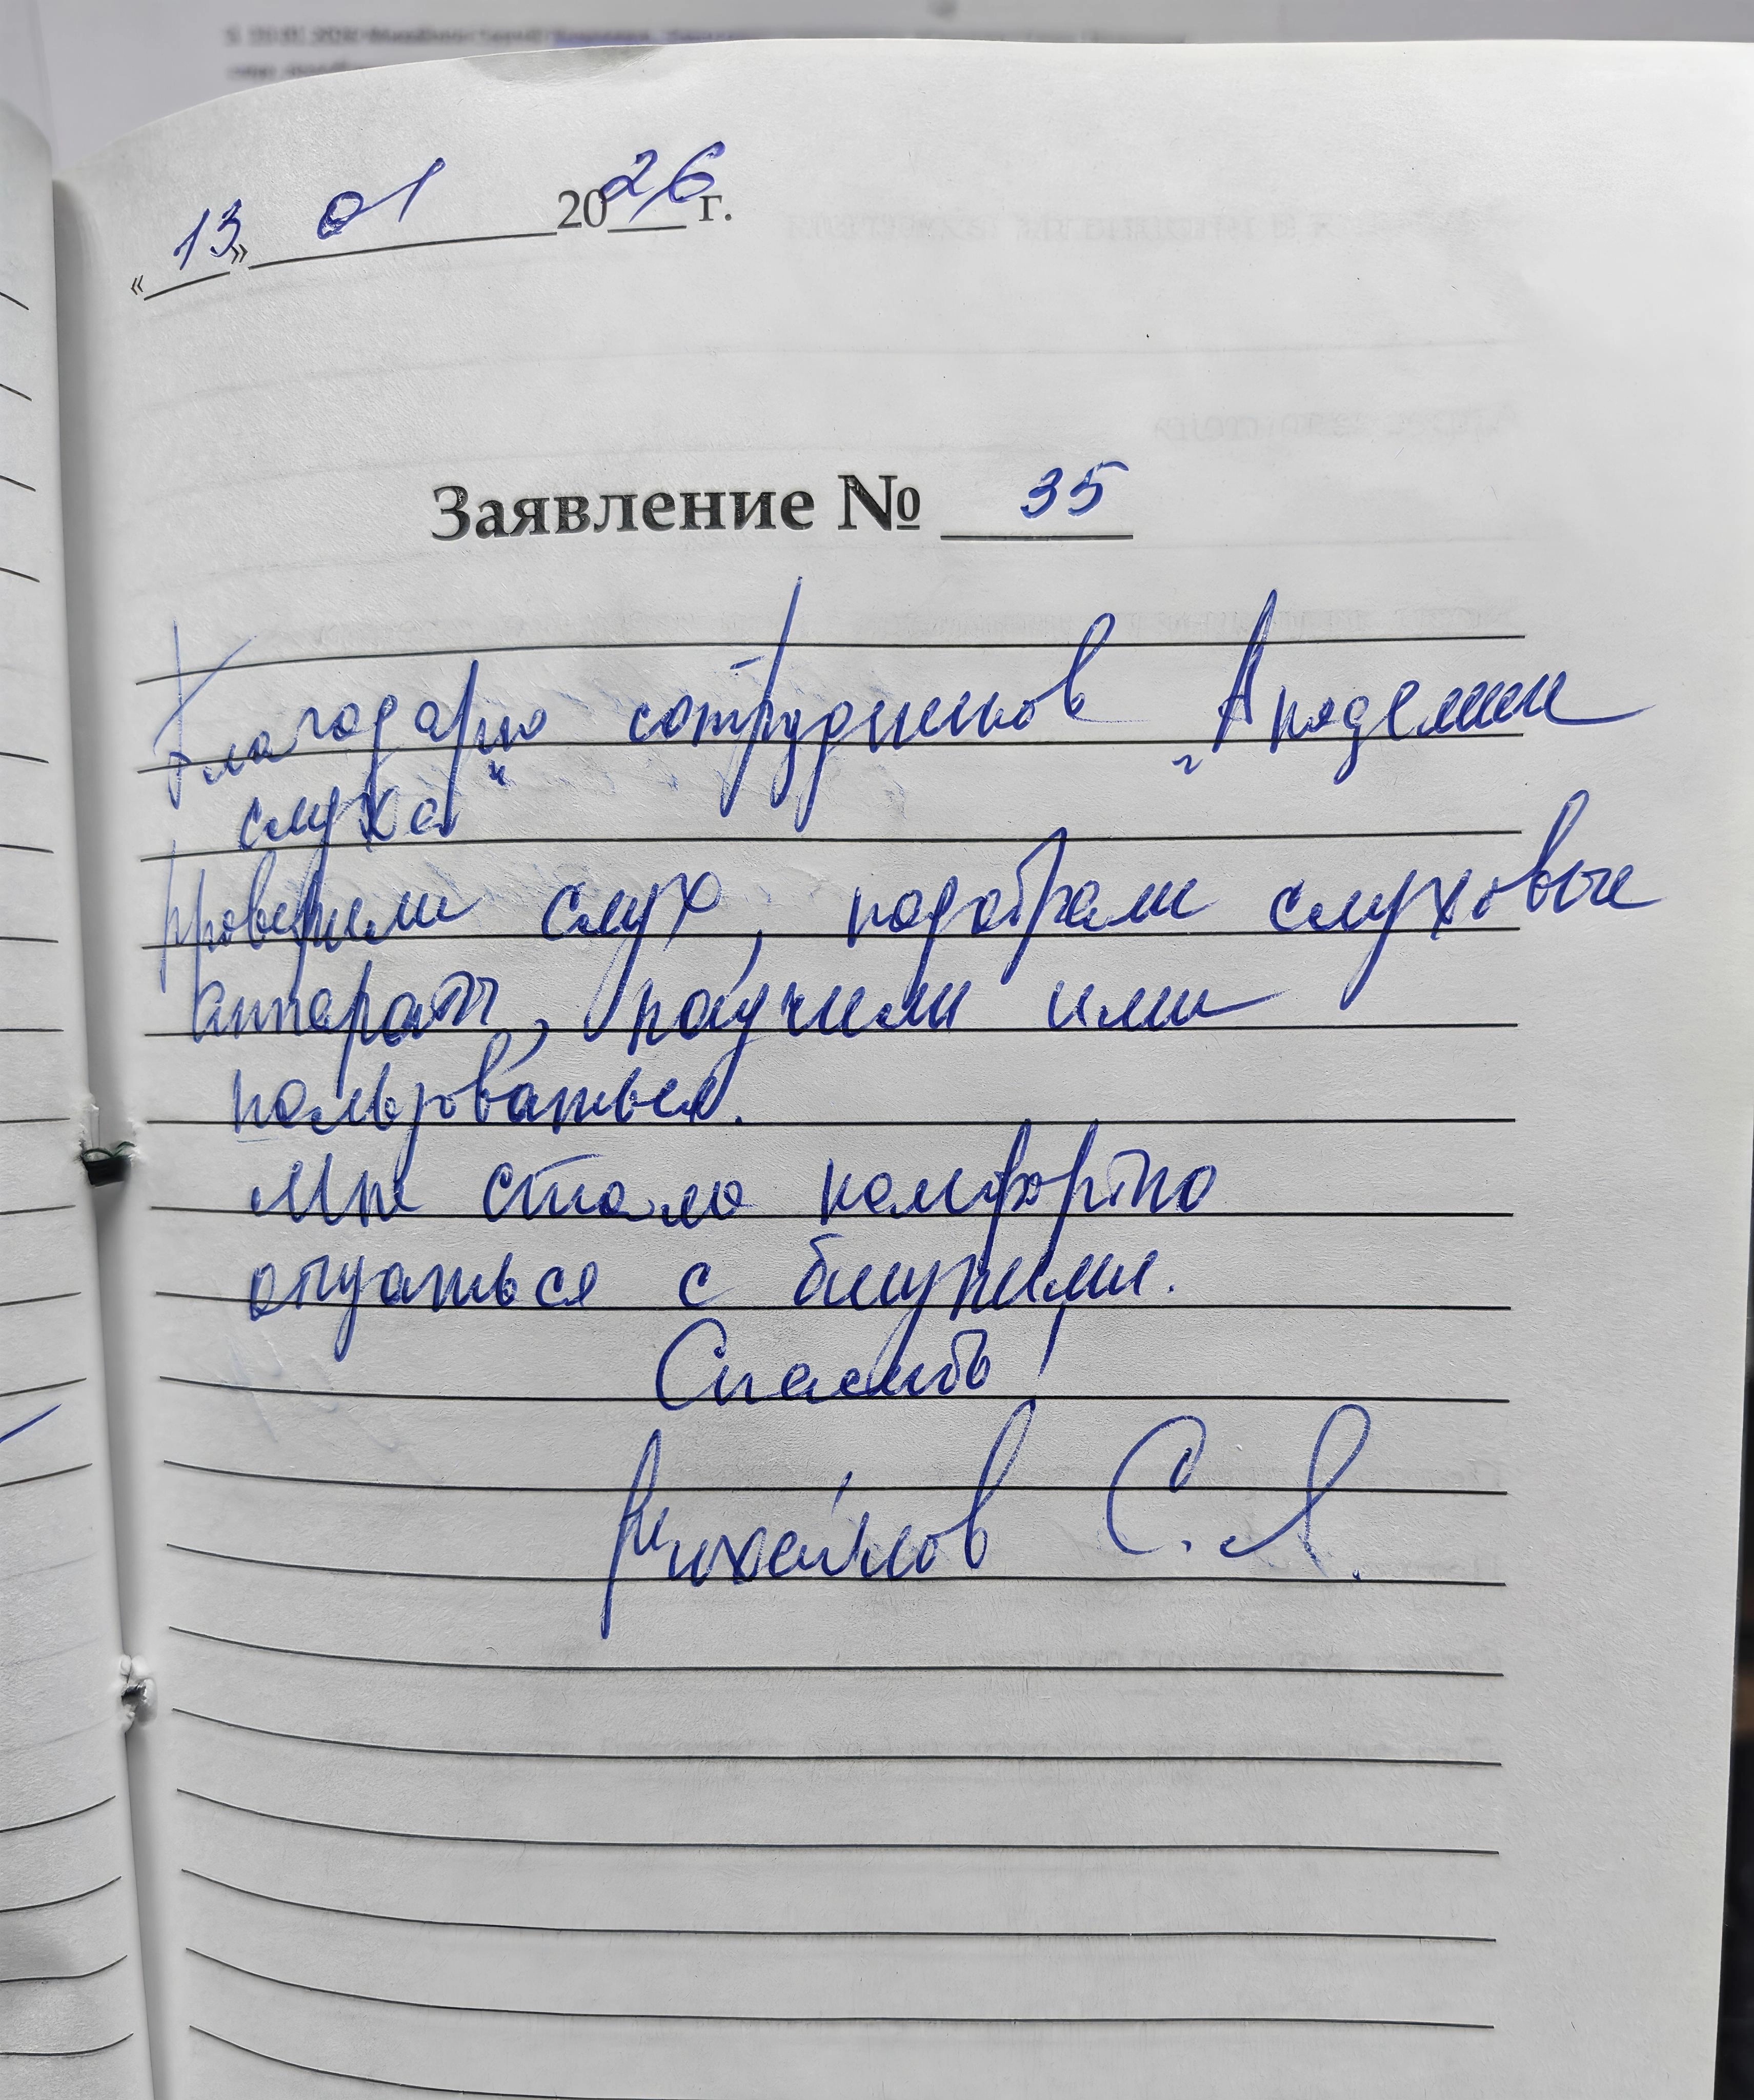 «13» 01 2026 г.
Заявление № 35
Благодарю сотрудников "Академии
слуха"
Проверили слух, подобрали слуховые
аппараты, научили ими
пользоваться.
Мне стало комфортно
общаться с близкими.
Спасибо!
Михайлов С. А.